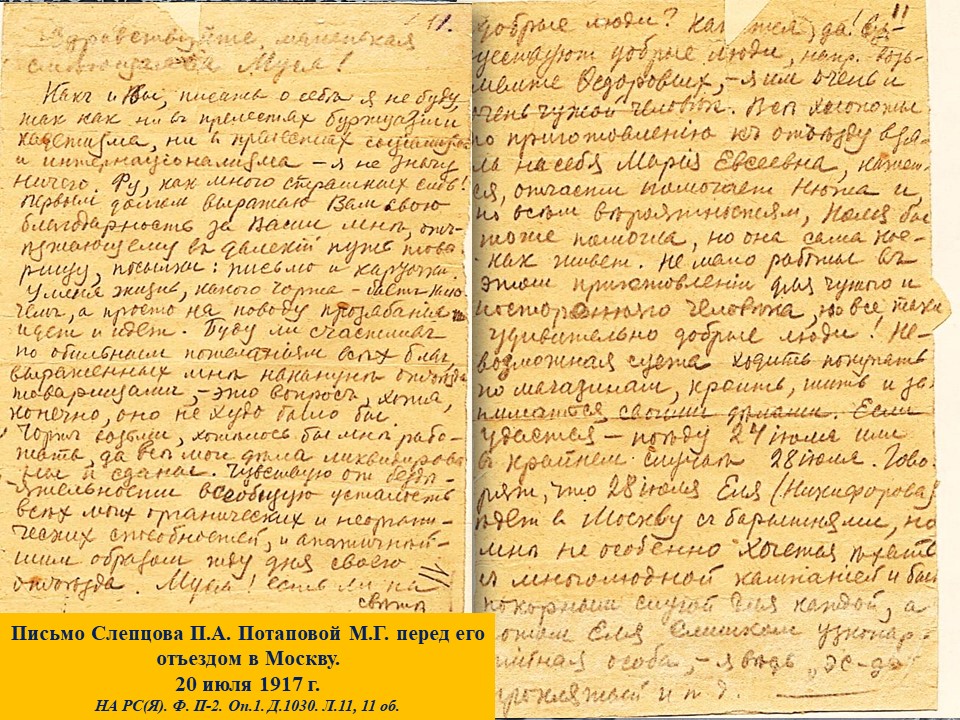 11.
Здравствуйте, маленькая
Муся!
Какъ и Вы, писать о себѣ я не буду,
такъ как ни в прелестях буржуазии
ни в прелестях
и интернаціонализма – я не знаю
ничего. Фу, как много страшных слов!
Первым долгом выражаю Вам свою
благодарность за Ваши мнѣ, отъ-
ѣзжающему въ далекій путь това-
рищу, посылки: письмо и карточки.
У меня жизнь, какого чорта – бьетъ
а просто на поводу прозябания
идет и идет. Буду ли счастлив
по обильным пожеланіям всѣх благ,
выраженных мнѣ наканунѣ отъѣзда
товарищами, – это вопрос, хотя,
конечно, оно не худо было бы.
Чортъ возьми, хотѣлось бы мнѣ рабо-
тать, да всѣ мои дѣла ликвидирова-
ны и сданы. Чувствую от бездѣ-
ятельности всеобщую усталость
всѣх моих органических и неорган-
ческих способностей, и апатичнѣй-
шим образом жду дня своего
отъѣзда. Муся! есть ли на
свѣтѣ
11
добрые люди? Кажется, да! Су-
ществуют добрые люди, напр. возь-
мите Ѳедоровых, – я им очень и
очень чужой человѣк. Всѣ хлопоты
по приготовленію къ отъѣзду взя-
ла на себя Марія Евсеевна, кажет-
ся, отчасти помогает Нюта и
по всѣм вѣроятностям, бы
тоже помогла, но она сама кое-
как живет. Не мало работы въ
этом приготовленіи для чужого и
посторонняго человѣка, но все таки
удивительно добрые люди! Не-
возможная ходить покупать
по магазинам, кроить, шить и за-
ниматься своими дѣлами. Если
удастся – поѣду 24 іюля или
в крайнем случаѣ 28 іюля. Гово-
рят, что 28 іюля Еля (Никифорова)
ѣдет в Москву съ барышнями, но
мнѣ не особенно хочется ѣхать
съ многолюдной кампаніей и быть
покорным слугой для каждой, а
потом Еля слишком узкопар-
тійная особа, – я вѣдь „эс-дэ“
проклятый и п д.
Письмо Слепцова П.А. Потаповой М.Г. перед его
отъездом в Москву.
20 июля 1917 г.
НА РС(Я). Ф. П-2. Оп.1. Д.1030. Л.11, 11 об.